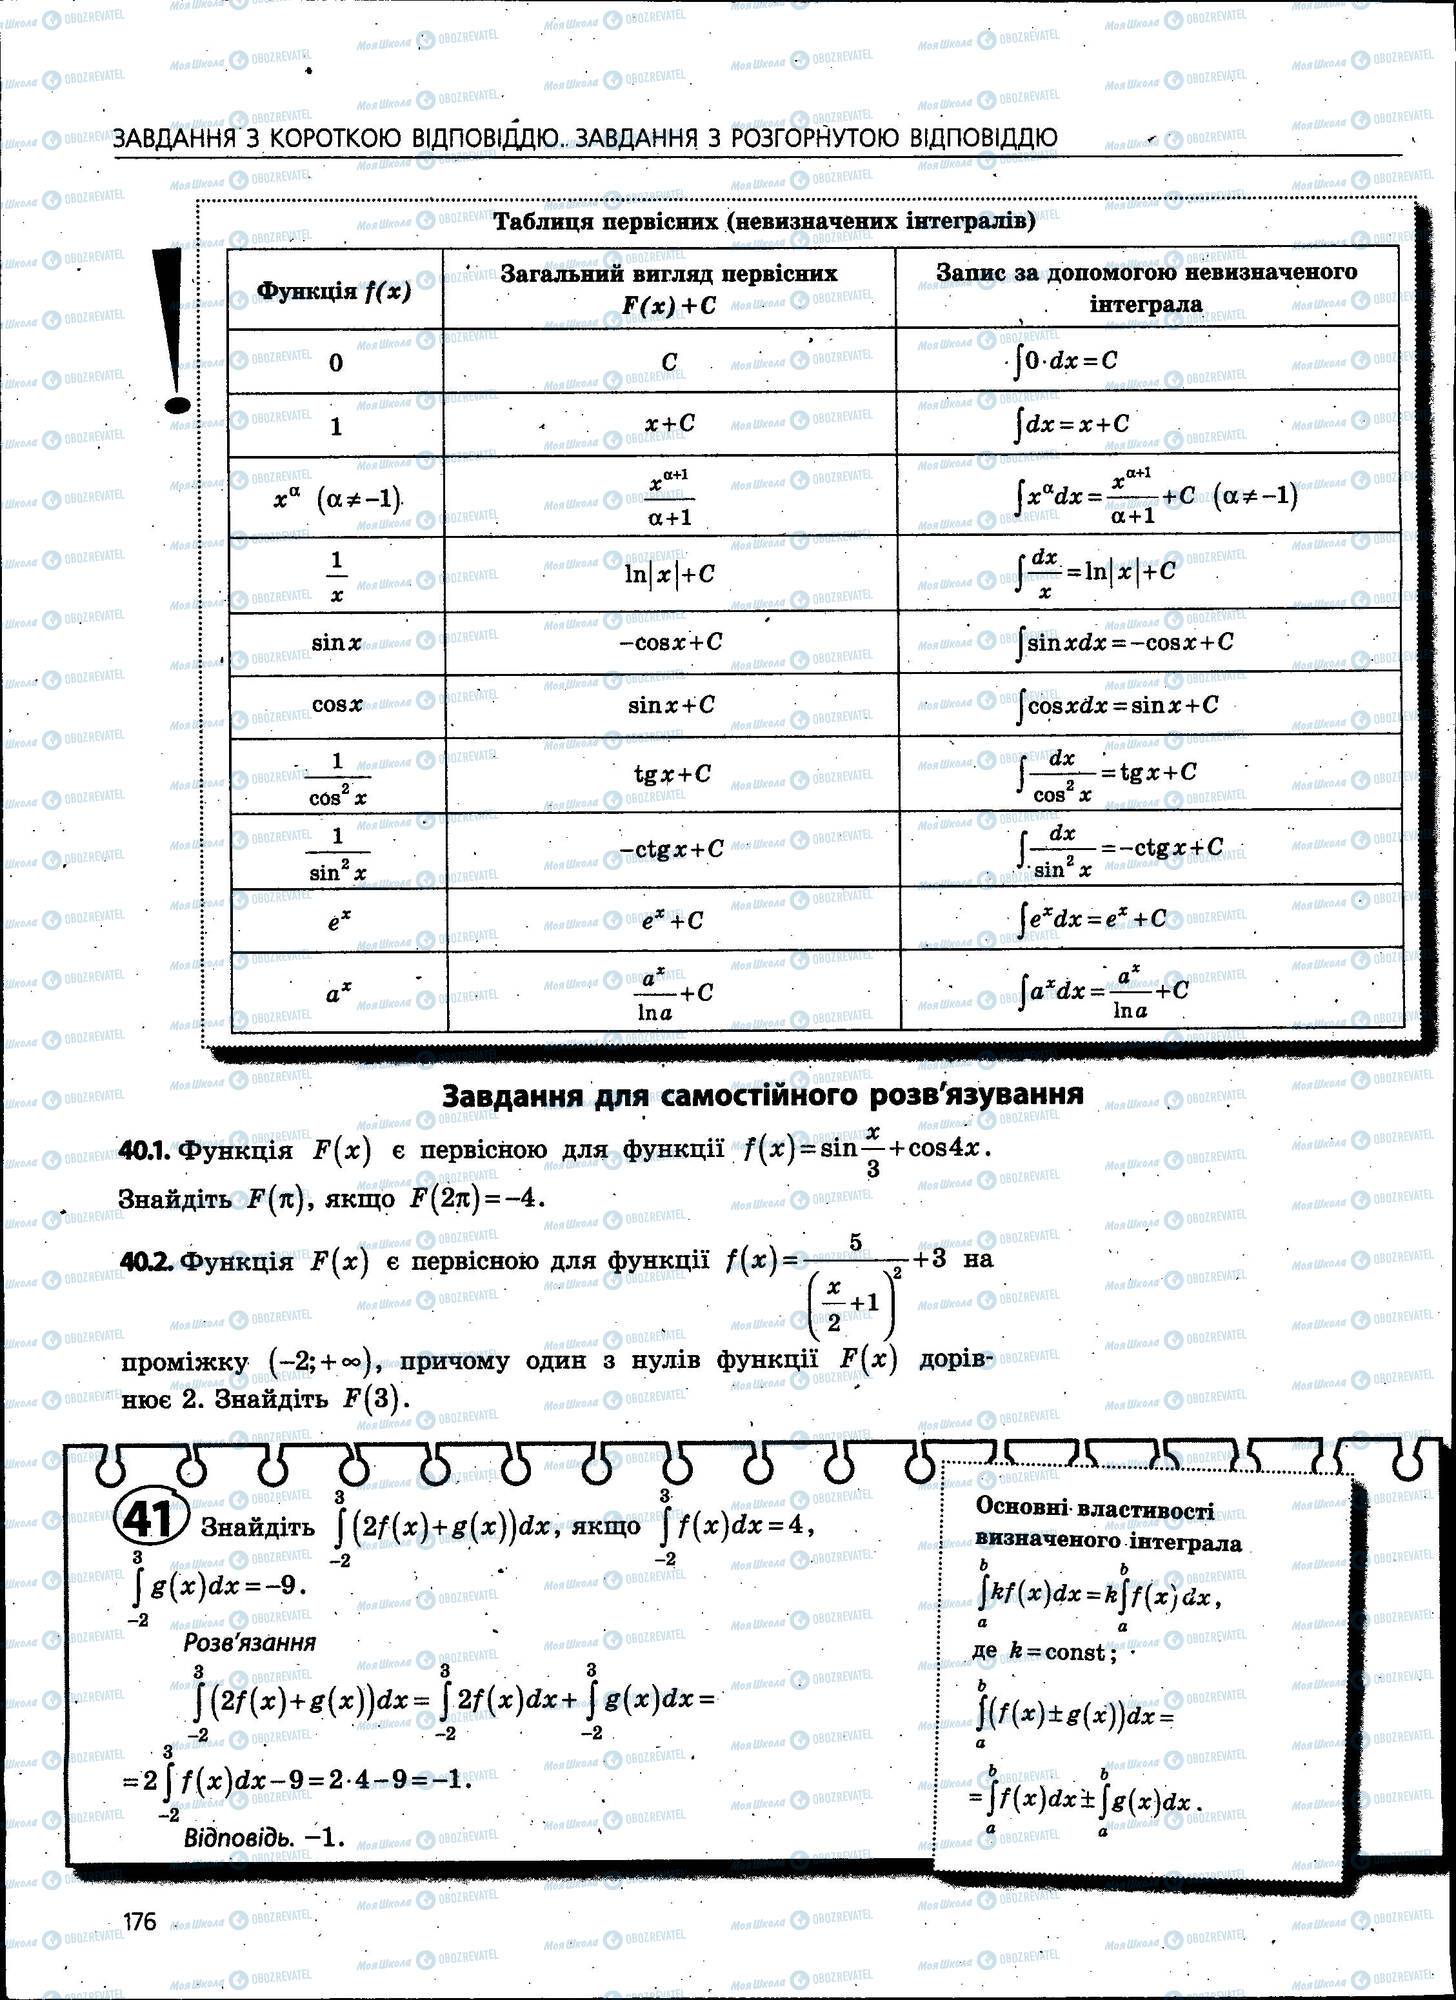 ЗАВДАННЯ З КОРОТКОЮ ВІДПОВІДДЮ. ЗАВДАННЯ З РОЗГОРНУТОЮ ВІДПОВІДДЮ
Таблиця первісних (невизначених інтегралів)
Функція f(x) | Загальний вигляд первісних F(x)+C | Запис за допомогою невизначеного інтеграла
0 | C | ∫0·dx=C
1 | x+C | ∫dx=x+C
x^α (α≠−1) | x^(α+1)/(α+1) | ∫x^α dx=x^(α+1)/(α+1)+C (α≠−1)
1/x | ln|x|+C | ∫dx/x=ln|x|+C
sin x | −cos x+C | ∫sin xdx=−cos x+C
cos x | sin x+C | ∫cos xdx=sin x+C
1/cos² x | tg x+C | ∫dx/cos² x=tg x+C
1/sin² x | −ctg x+C | ∫dx/sin² x=−ctg x+C
e^x | e^x+C | ∫e^x dx=e^x+C
a^x | a^x/ln a+C | ∫a^x dx=a^x/ln a+C
Завдання для самостійного розв'язування
40.1. Функція F(x) є первісною для функції f(x)=sin x/3+cos4x.
Знайдіть F(π), якщо F(2π)=−4.
40.2. Функція F(x) є первісною для функції f(x)=5/(x/2+1)²+3 на
проміжку (−2;+∞), причому один з нулів функції F(x) дорів-
нює 2. Знайдіть F(3).
41 Знайдіть ∫₋₂³(2f(x)+g(x))dx, якщо ∫₋₂³f(x)dx=4,
∫₋₂³g(x)dx=−9.
Розв'язання
∫₋₂³(2f(x)+g(x))dx=∫₋₂³2f(x)dx+∫₋₂³g(x)dx=
=2∫₋₂³f(x)dx−9=2·4−9=−1.
Відповідь. −1.
Основні властивості
визначеного інтеграла
∫ₐᵇkf(x)dx=k∫ₐᵇf(x)dx,
де k=const;
∫ₐᵇ(f(x)±g(x))dx=
=∫ₐᵇf(x)dx±∫ₐᵇg(x)dx.
176
Моя Школа OBOZREVATEL